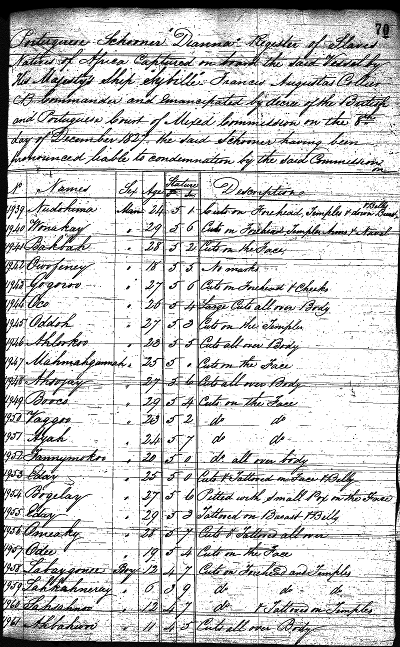 70
Portuguese Schooner "Dianna" Register of Slaves
Natives of Africa Captured on board the said Vessel by
His Majestys Ship Sybille Francis Augustus Collier
C.B. Commander and Emancipated by decree of the British
and Portuguese Court of Mixed Commission on the 8th
day of December 1827 the said Schooner having been
pronounced liable to condemnation by the said Commissions
No Names Sex Age Stature Descriptions
Ft In
1939 Man 24 5 1 Cuts on Forehead, Temples & down Breast & Belly
1940 " 29 5 6 Cuts on Forehead Temples Arms & Navel
1941 Bahvah " 28 5 2 Cuts on the Face
1942 " 18 5 3 No marks
1943 Gogoroo " 27 5 6 Cuts on Forehead & Cheeks
1944 Oco " 26 5 4 Large Cuts all over Body
1945 Oddoh " 27 5 3 Cuts on the Temples
1946 " 23 5 5 Cuts all over Body
1947 Mahmahgammah " 25 5 " Cuts on the Face
1948 " 27 5 6 Cuts all over Body
1949 Booco " 29 5 4 Cuts on the Face
1950 Vaggoo " 23 5 2 do do
1951 Ayah " 24 5 7 do do
1952 Fannymokoo " 20 5 0 do all over body
1953 Eday " 25 5 0 Cuts & Tattooed on Face & Belly
1954 Bogelay " 27 5 6 Pitted with Small Pox on the Face
1955 Eday " 29 5 3 Tattooed on Breast & Belly
1956 Omeaky " 28 5 7 Cuts & Tattooed all over
1957 Odee " 19 5 4 Cuts on the Face
1958 Boy 12 4 7 Cuts on Forehead and Temples
1959 " 6 3 9 do do do
1960 " 12 4 7 do & Tattooed on Temples
1961 " 11 4 5 Cuts all over Body